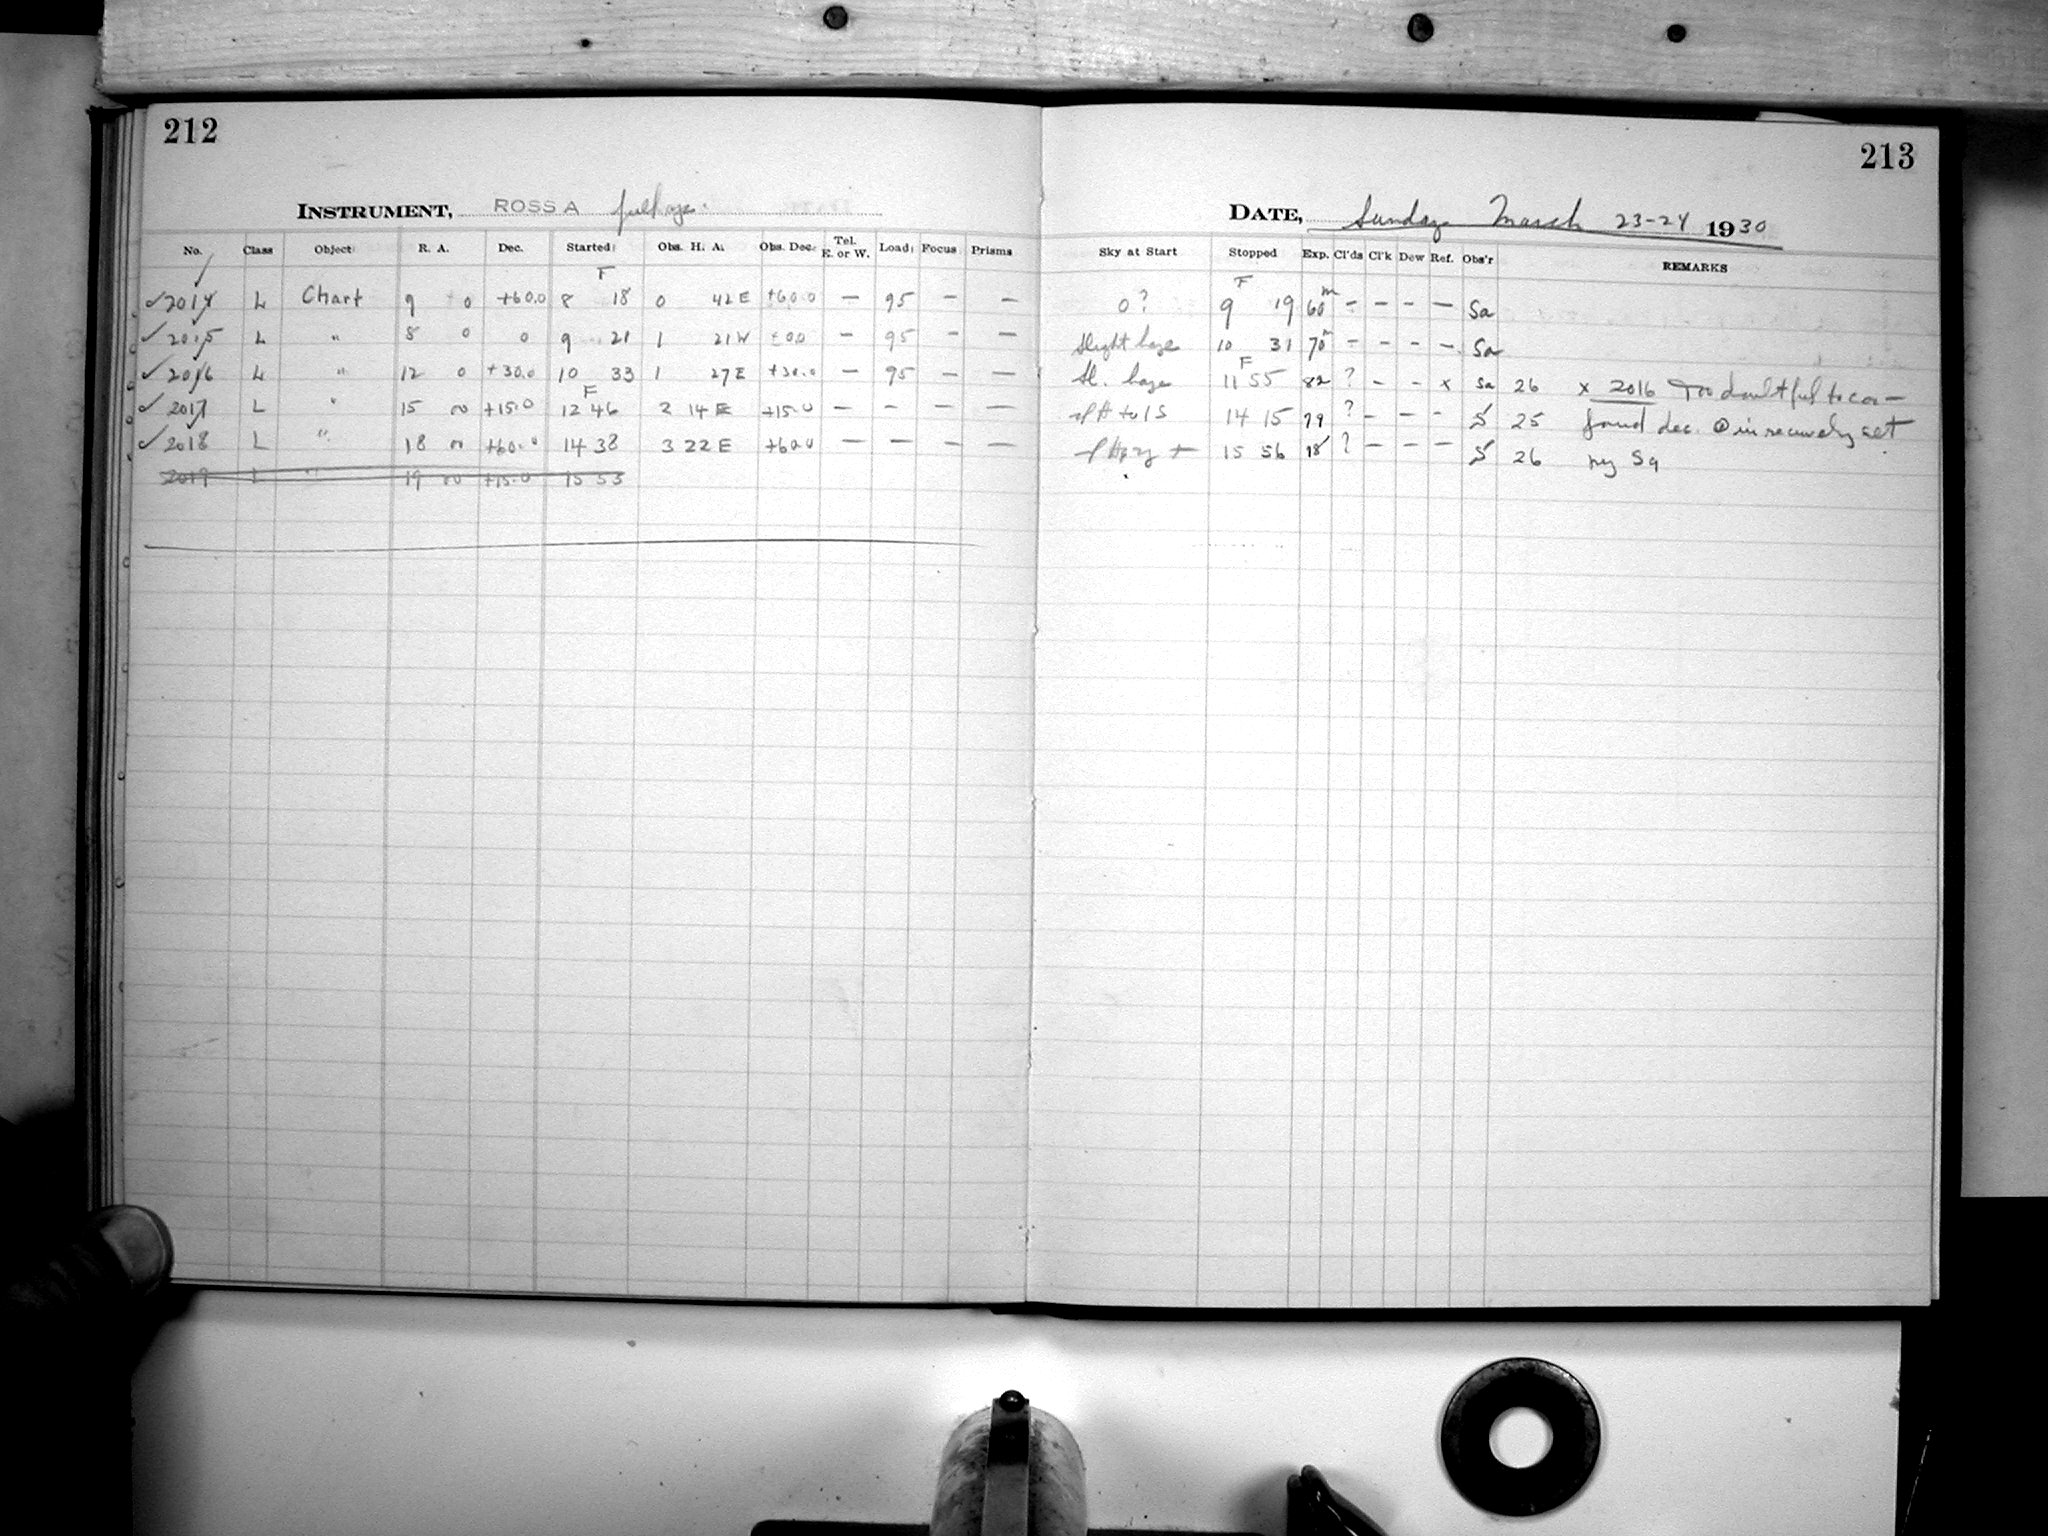 212
INSTRUMENT, ROSS A
No. Class Object R. A. Dec. Started Obs. H. A. Obs. Dec. Tel. E. or W. Load Focus Prisms
F
✓2014 L Chart 9 0 +60.0 8 18 0 42E +60.0 — 95 — —
✓2015 L " 8 0 0 9 21 1 21W ±0.0 — 95 — —
✓2016 L " 12 0 +30.0 10 33 1 27E +30.0 — 95 — —
F
✓2017 L " 15 00 +15.0 12 46 2 14E +15.0 — — — —
✓2018 L " 18 00 +60.0 14 38 3 22E +60.0 — — — —
2019 L " 19 00 +15.0 15 53
213
DATE, Sunday March 23-24 1930
Sky at Start Stopped Exp. Cl'ds Cl'k Dew Ref. Obs'r REMARKS
F
0? 9 19 60m — — — — Sa
Slight haze 10 31 70m — — — — Sa
F
Sl. haze 11 55 82 ? — — x Sa 26 x 2016 Too doubtful to con-
14 15 ? — — — S 25 found dec. inaccurately set
15 56 78 ? — — — S 26 by Sa